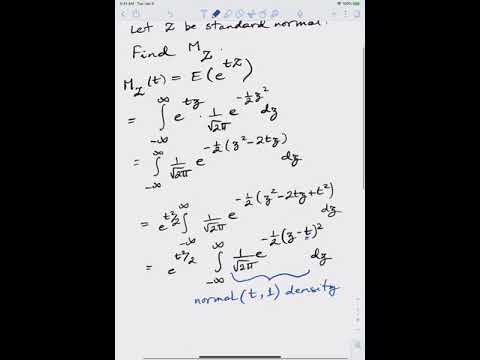 9:41 AM Tue Jan 9
100%
Let Z be standard normal.
Find M_Z.
M_Z(t) = E(e^{tZ})
= ∫_{-∞}^{∞} e^{tz} · 1/√(2π) e^{-1/2 z²} dz
= ∫_{-∞}^{∞} 1/√(2π) e^{-1/2(z²-2tz)} dz
= e^{t²/2} ∫_{-∞}^{∞} 1/√(2π) e^{-1/2(z²-2tz+t²)} dz
= e^{t²/2} ∫_{-∞}^{∞} 1/√(2π) e^{-1/2(z-t)²} dz
normal(t, 1) density